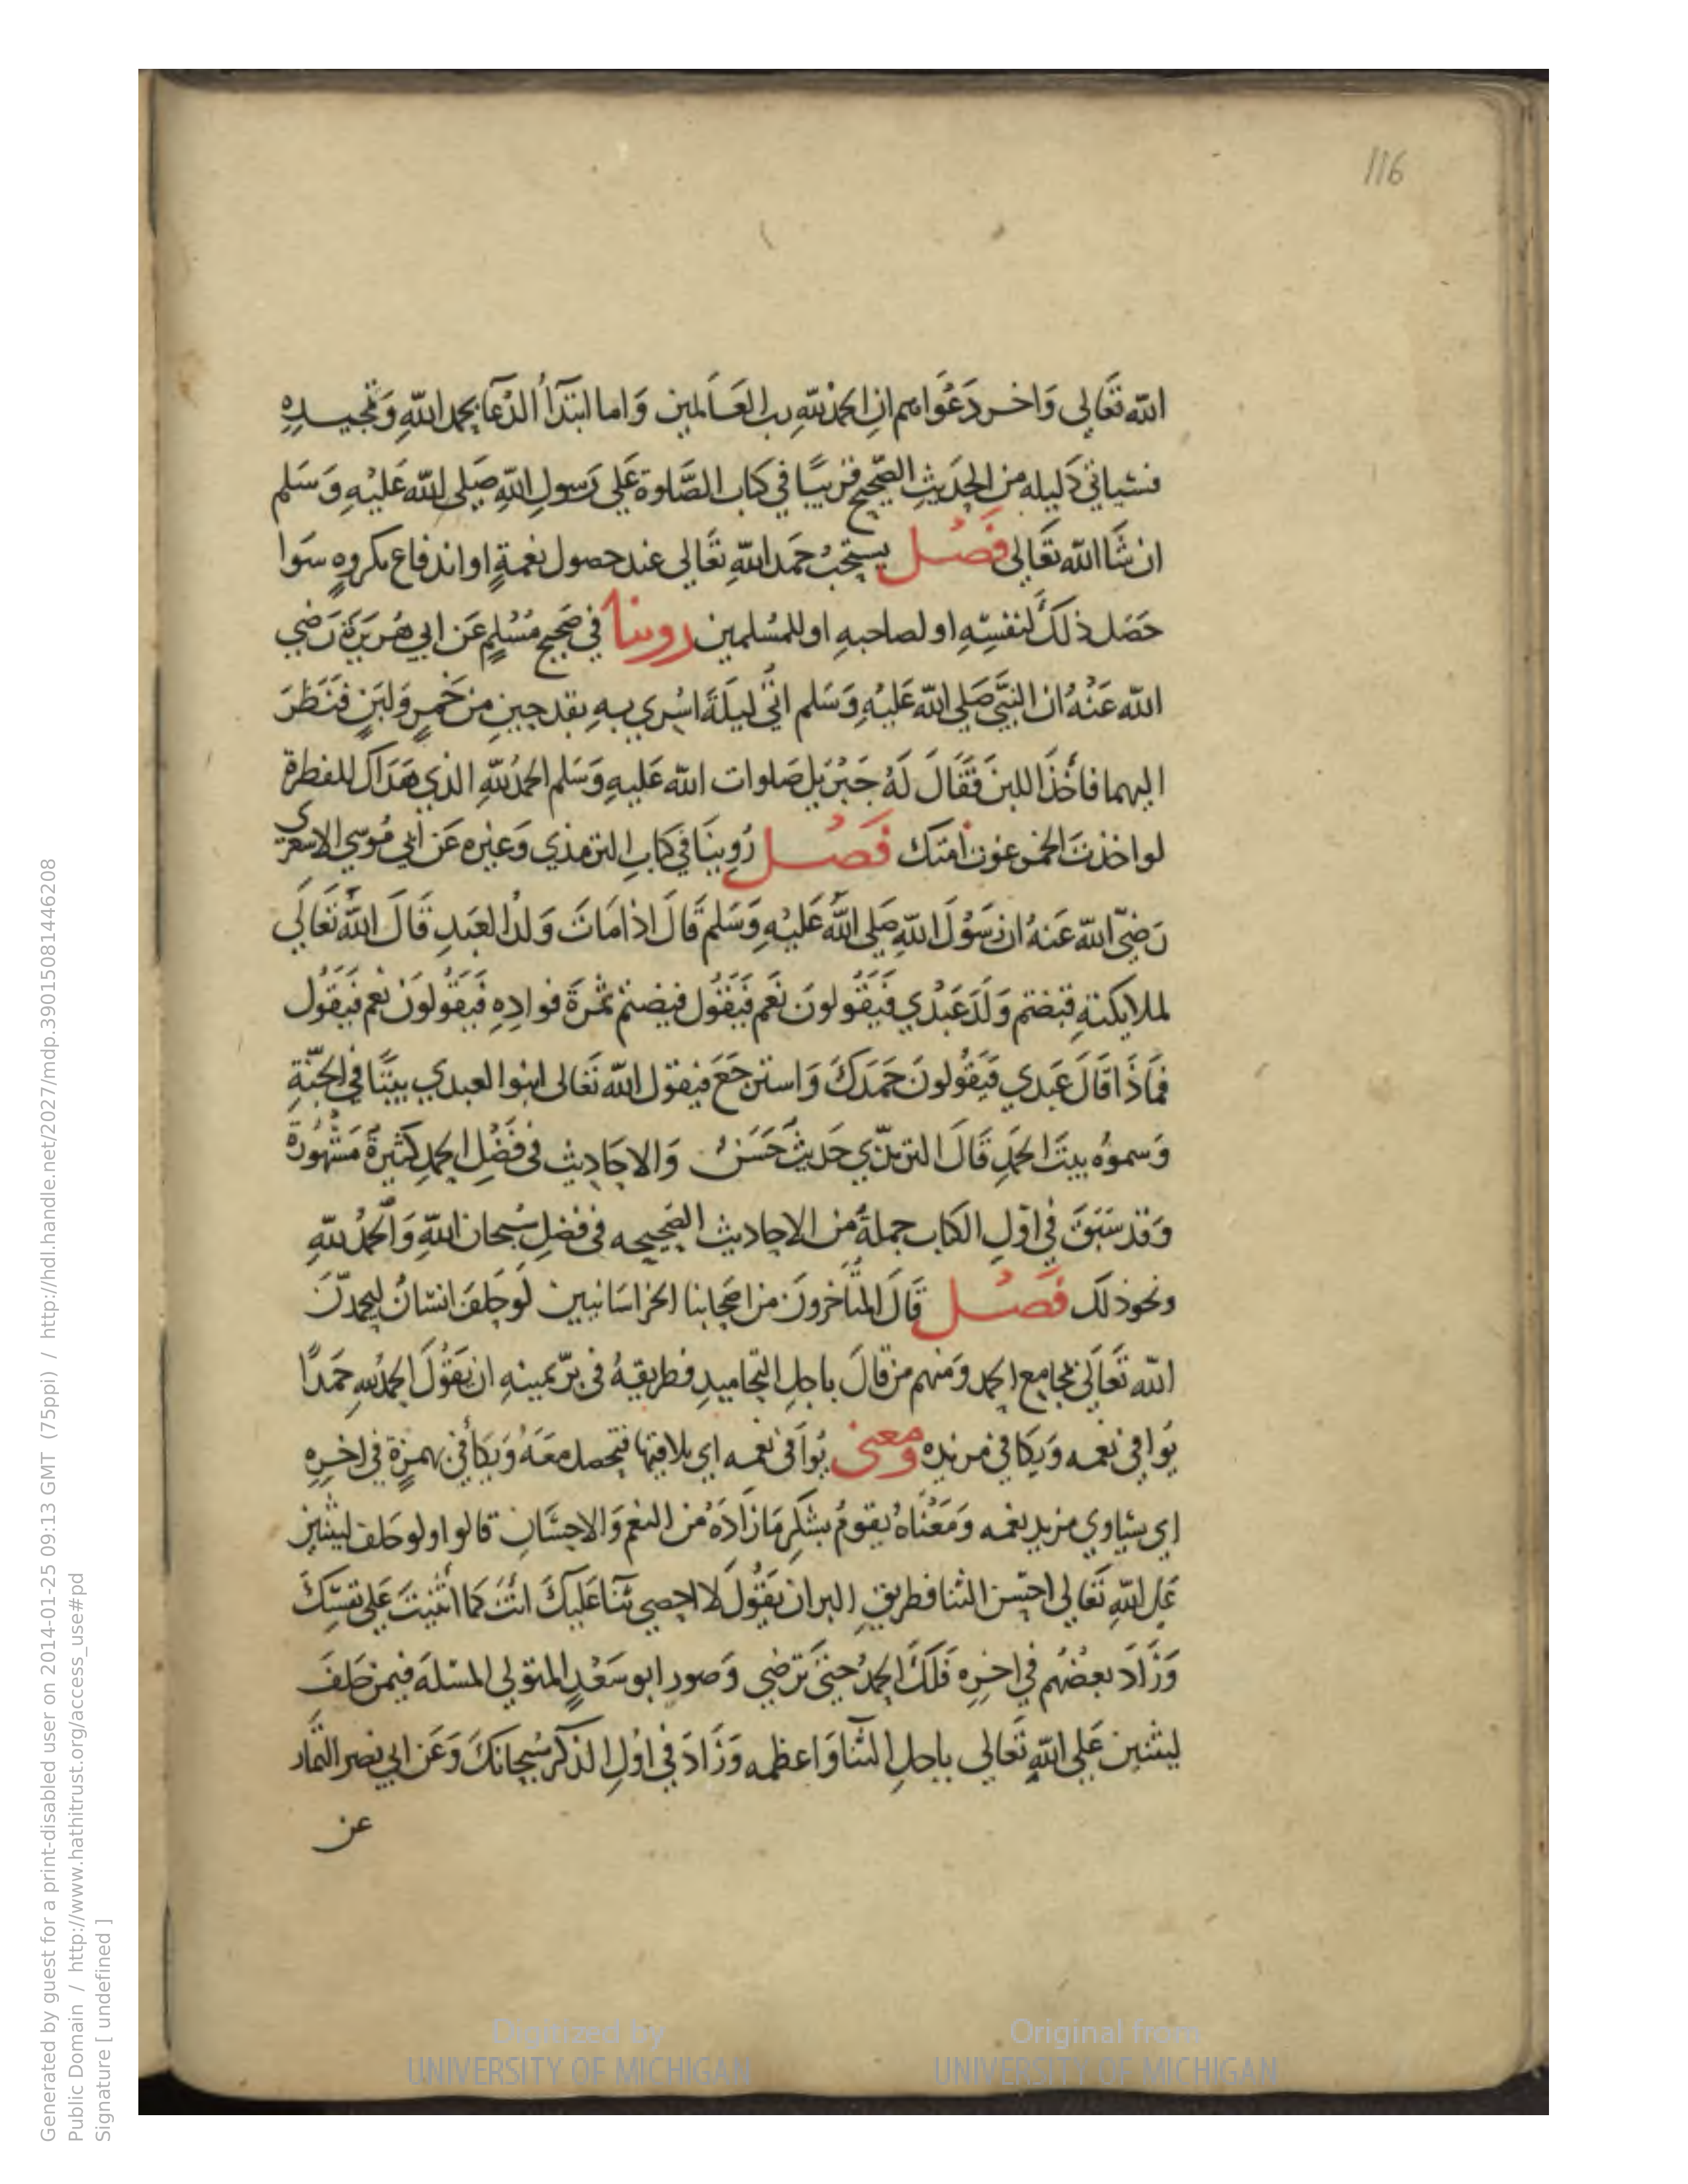 116
الله تعالى وَاخر دَعْوَاهم ان الحمدُ للّهِ رب العَالمين وَاما ابتدَأُ الدُعَآ بحمد اللّهِ وَتمجيدِهِ
فسَياتي دَليله من الحَديثِ الصّحيح قريبًا في كتاب الصَّلوة عَلى رَسولِ اللهِ صَلى الله عَليْهِ وَسَلم
ان شَا الله تعَالى فصْل يستحبُ حَمَد اللّهِ تعَالى عند حصول نعمةٍ او اندفاع مكروهٍ سَوا
حَصَل ذلكَ لنفسِهِ او لصاحبهِ او للمسُلمين روينا في صَحيح مُسْلمٍ عَن ابي هُرَيرَة رَضي
الله عَنْهُ ان النبيَّ صَلى الله عَليْهِ وَسَلم اتي ليلَةَ اسُري بهِ بقدحينِ من خَمرٍ وَلبَنٍ فنَظَرَ
اليهما فاَخَذَ اللبنَ فَقَالَ لَهُ جَبْرَيل صَلوات الله عَليهِ وَسَلم الحمدُ للّهِ الذي هَدَاك للفطرة
لو اخذتَ الخمر غوت اُمتك فصُل رُوينَا في كتابِ الترمذي وَغيره عَن ابي مُوسي الاسعرى
رَضيَ الله عَنهُ ان رَسُولَ اللهِ صَلى اللهُ عَليْهِ وَسَلم قَالَ اذا مَاتَ وَلدُ العَبَدِ قَالَ اللّهُ تَعَالَى
لملايكتهِ قبَضتم وَلَدَ عَبْدي فَيَقُولونَ نَعَم فَيَقُول قبضتم ثمرَةَ فوادِهِ فَيَقُولونَ نعم فيَقول
فمَاذَا قَالَ عَبدي فَيقُولونَ حَمَدَكَ وَاسترجَعَ فيقول الله تعَالى ابنوا لعبدي بيتًا في الجَنّةِ
وَسموُه بيتَ الحَمدِ قَالَ الترمذّي حَديثٌ حَسَنٌ وَالاحَاديث في فضَلِ الحمدِ كثيرةٌ مَشهُورَة
وَقد سَبَقَ في اوّلِ الكتاب جملةٌ من الاحاديث الصَحيحه في فضلِ سُبحان اللّهِ وَالحمدُ للّهِ
ونحو ذلكَ فصْل قالَ المتأخرونَ من اصحابنا الخراسَانيين لَو حلفَ انسَانٌ ليحمدَنّ
الله تَعَالَى بمجامع الحمد وَمنهم من قالَ باجلِ التحاميدِ فطريقهُ في برّ يمينهِ ان يَقُولَ الحمدُ للهِ حَمدًا
يُوافي نعمه وَيكافي مزيده ومعنى يُوافى نعمه اي يلاقيها فتحصل معَهُ وَيكافئ بهمزةٍ في اخرِهِ
اي يسَاوي مزيد نعمه وَمَعْنَاهُ يقومُ بشكرِ مَا زَادَهُ من النعم وَالاحسَان قالوا ولو حَلف ليثنين
عَلى اللّهِ تَعَالى احسَن الثنا فطريق البر ان يَقُولَ لا احصي ثنَا عَليكَ انتَ كمَا اثَنيتَ عَلى نفسِكَ
وَزَادَ بعضُهُم في اخرِهِ فَلكَ الحمدُ حتىَ تَرضي وَصور ابو سَعْدٍ المتولي المسئلَة فيمن حَلفَ
ليثنين عَلى اللّهِ تَعالى باجلِ الثنا وَاعظمه وَزَادَ في اوّلِ الذكر سُبحانكَ وَعَن ابي نصر التمَار
عن
Generated by guest for a print-disabled user on 2014-01-25 09:13 GMT (75ppi) / http://hdl.handle.net/2027/mdp.39015081446208
Public Domain / http://www.hathitrust.org/access_use#pd
Signature [ undefined ]
Digitized by UNIVERSITY OF MICHIGAN
Original from UNIVERSITY OF MICHIGAN